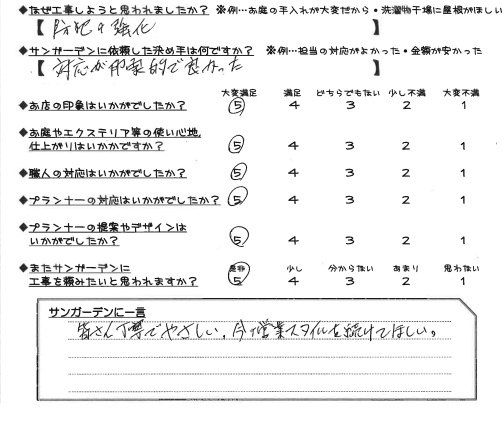 ◆なぜ工事しようと思われましたか？ ※例…お庭の手入れが大変だから・洗濯物干場に屋根がほしい
【 防犯の強化 】
◆サンガーデンに依頼した決め手は何ですか？ ※例…担当の対応がよかった・金額が安かった
【 対応が印象的で良かった 】
大変満足 満足 どちらでもない 少し不満 大変不満
◆お店の印象はいかがでしたか？ 5 4 3 2 1
◆お庭やエクステリア等の使い心地,
仕上がりはいかかですか？ 5 4 3 2 1
◆職人の対応はいかがでしたか？ 5 4 3 2 1
◆プランナーの対応はいかがでしたか？ 5 4 3 2 1
◆プランナーの提案やデザインは
いかがでしたか？ 5 4 3 2 1
◆またサンガーデンに 是非 少し 分からない あまり 思わない
工事を頼みたいと思われますか？ 5 4 3 2 1
サンガーデンに一言
皆さん丁寧でやさしい。今の営業スタイルを続けてほしい。